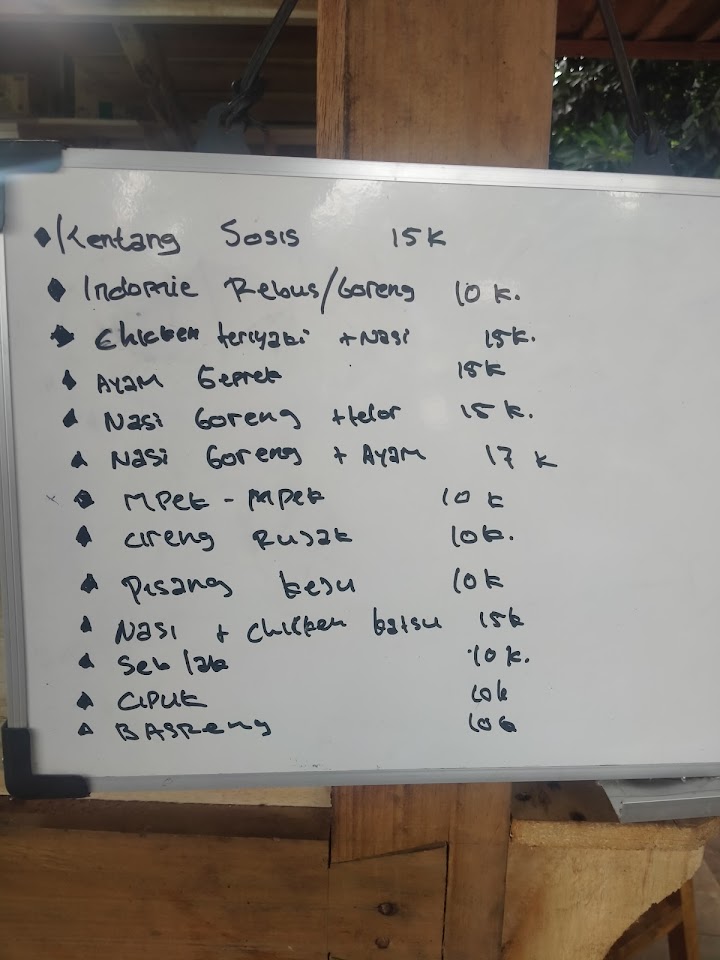 Kentang Sosis 15K
Indomie Rebus/Goreng 10 K.
Chicken teriyaki + Nasi 15K.
AyAM Geprek 15K
NASi Goreng +telor 15 K.
NASi Goreng + AyAM 17 K
MPEK - MPEK 10 K
cireng RUJAK 10K.
Pisang keju 10K
NASi + chicken katsu 15K
Seblak 10 K.
CiPUK 10k
BASReng 10k